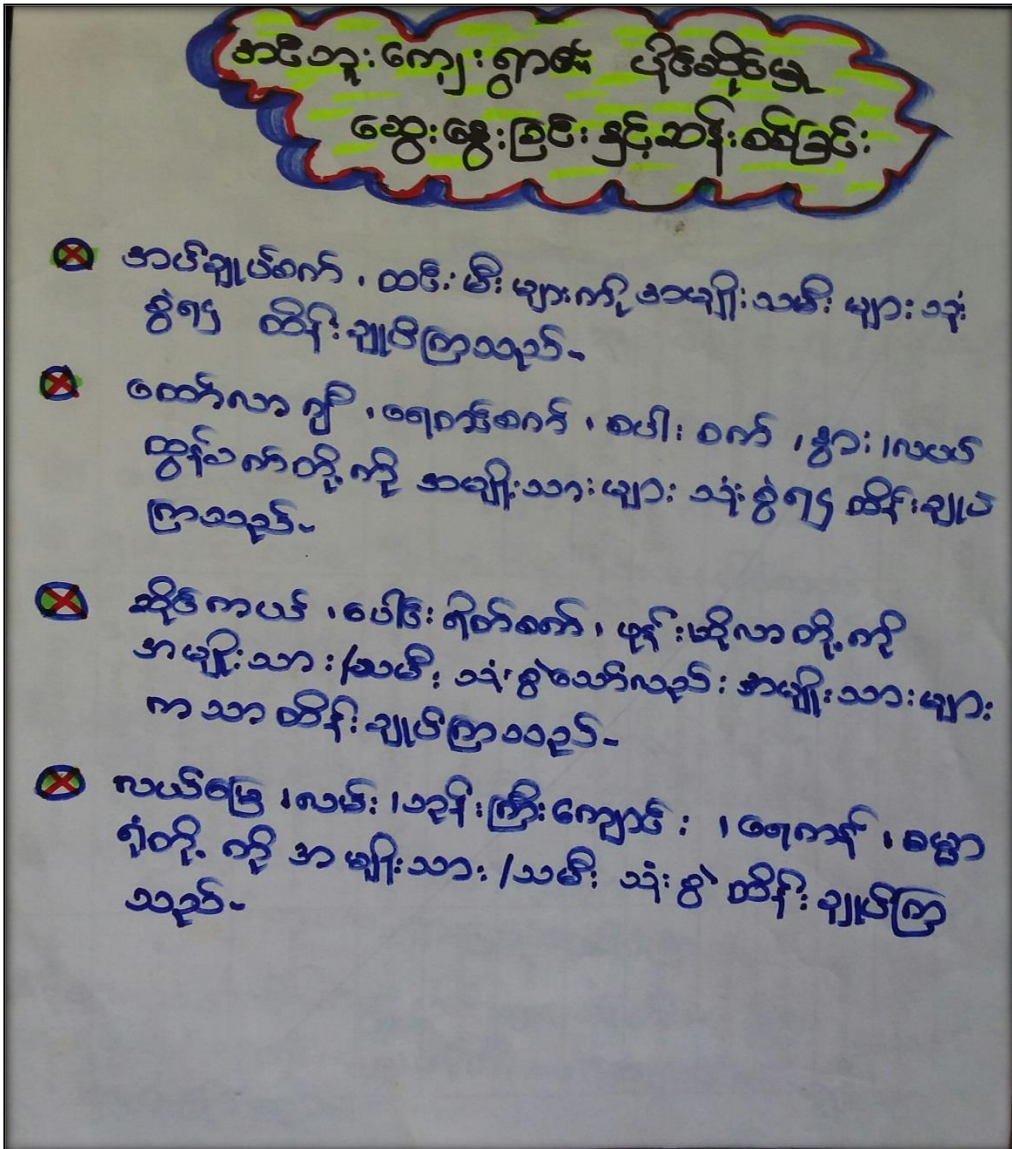 အင်ဘူးကျေးရွာ၏ ပိုင်ဆိုင်မှု
ဆွေးနွေးခြင်းနှင့်ဆန်းစစ်ခြင်း
အပ်ချုပ်စက် ၊ ထင်းမီးများကို အမျိုးသမီးများ သုံး
စွဲ၍ ထိန်းချုပ်ကြသည်-
ထော်လာဂျီ ၊ ရေတင်စက် ၊ စပါးစက် ၊ နွား ၊ လယ်
ထွန်စက်တို့ကို အမျိုးသားများ သုံးစွဲ၍ ထိန်းချုပ်
ကြသည်-
ဆိုင်ကယ် ၊ ပေါင်းရိတ်စက် ၊ ဖုန်း ၊ ဆိုလာတို့ကို
အမျိုးသား/သမီး သုံးစွဲသော်လည်း အမျိုးသားများ
ကသာ ထိန်းချုပ်ကြသည်-
လယ်မြေ ၊ လမ်း ၊ ဘုန်းကြီးကျောင်း ၊ ရေကန် ၊ ဓမ္မာ
ရုံတို့ကို အမျိုးသား/သမီး သုံးစွဲ ထိန်းချုပ်ကြ
သည်-